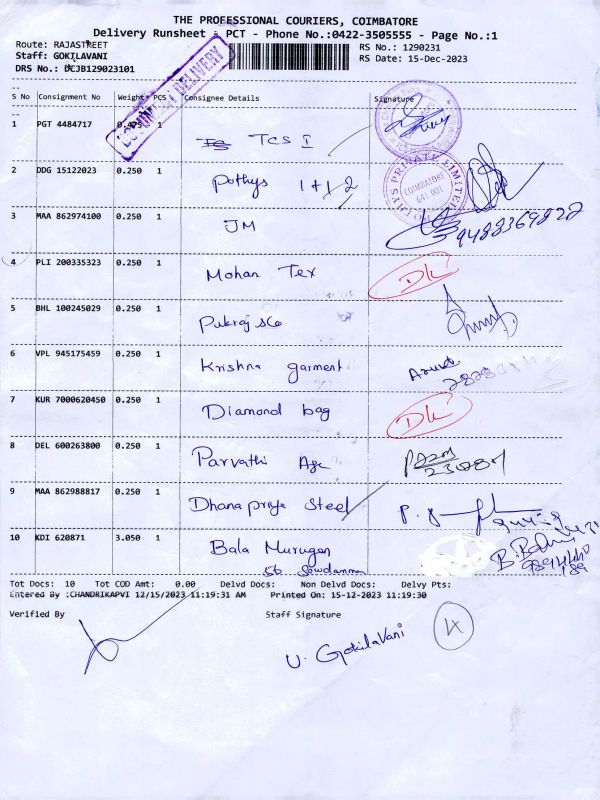 THE PROFESSIONAL COURIERS, COIMBATORE
Delivery Runsheet - PCT - Phone No.:0422-3505555 - Page No.:1
Route: RAJASTREET RS No.: 1290231
Staff: GOKILAVANI RS Date: 15-Dec-2023
DRS No.: DCJB129023101
DOCUMENT DELIVERY
S No Consignment No Weight PCS Consignee Details Signature
1 PGT 4484717 0.475 1 TCS I
2 DDG 15122023 0.250 1 Pothys 1+1 2
POTHYS PRIVATE LIMITED COIMBATORE 641 001
3 MAA 862974100 0.250 1 JM
4 PLI 200335323 0.250 1 Mohan Tex DL
5 BHL 100245029 0.250 1 Pukraj &Co
6 VPL 945175459 0.250 1 Krishna garment
7 KUR 7000620450 0.250 1 Diamond bag DL
8 DEL 600263800 0.250 1 Parvathi Age
9 MAA 862988817 0.250 1 Dhanapriya Steel
10 KDI 620871 3.050 1 Bala Murugan
56 Sowdamma
Tot Docs: 10 Tot COD Amt: 0.00 Delvd Docs: Non Delvd Docs: Delvy Pts:
Entered By :CHANDRIKAPVI 12/15/2023 11:19:31 AM Printed On: 15-12-2023 11:19:30
Verified By Staff Signature
U. Gokilavani 4